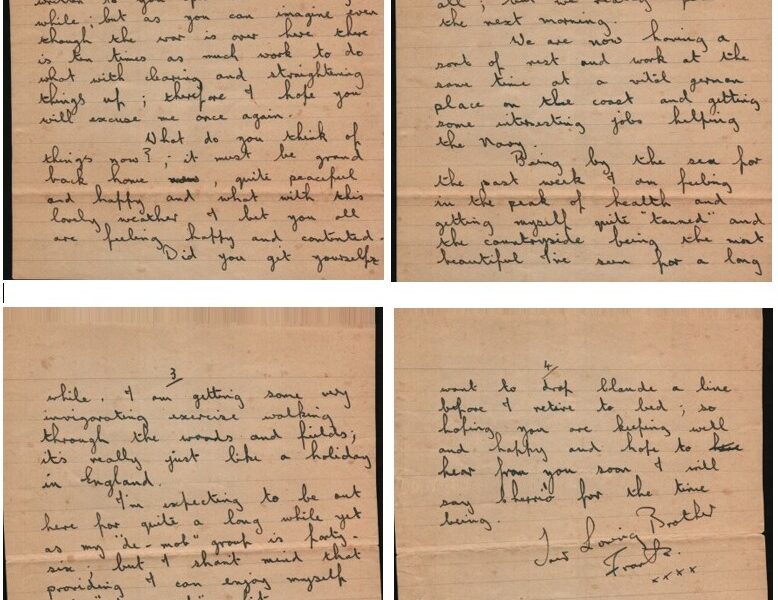 while, but as you can imagine even
though the war is over here there
is ten times as much work to do
what with clearing and straightening
things up; therefore I hope you
will excuse me once again.
What do you think of
things now?; it must be grand
back home now, quite peaceful
and happy and what with this
lovely weather I bet you all
are feeling happy and contented.
Did you get yourselfs
all; but we
the next morning.
We are now having a
sort of rest and work at the
same time at a german
place on the coast and getting
some interesting jobs helping
the Navy.
Being by the sea for
the past week I am feeling
in the peak of health and
getting myself quite "tanned" and
the countryside being the most
beautiful I've seen for a long
3
while. I am getting some very
invigorating exercise walking
through the woods and fields;
it's really just like a holiday
in England.
I'm expecting to be out
here for quite a long while yet
as my "de-mob" group is forty-
six; but I shan't mind that
providing I can enjoy myself
4
want to drop blande a line
before I retire to bed; so
hoping you are keeping well
and happy and hope to
hear from you soon I will
say cherrio for the time
being.
Your Loving Brother
Frank.
xxxx